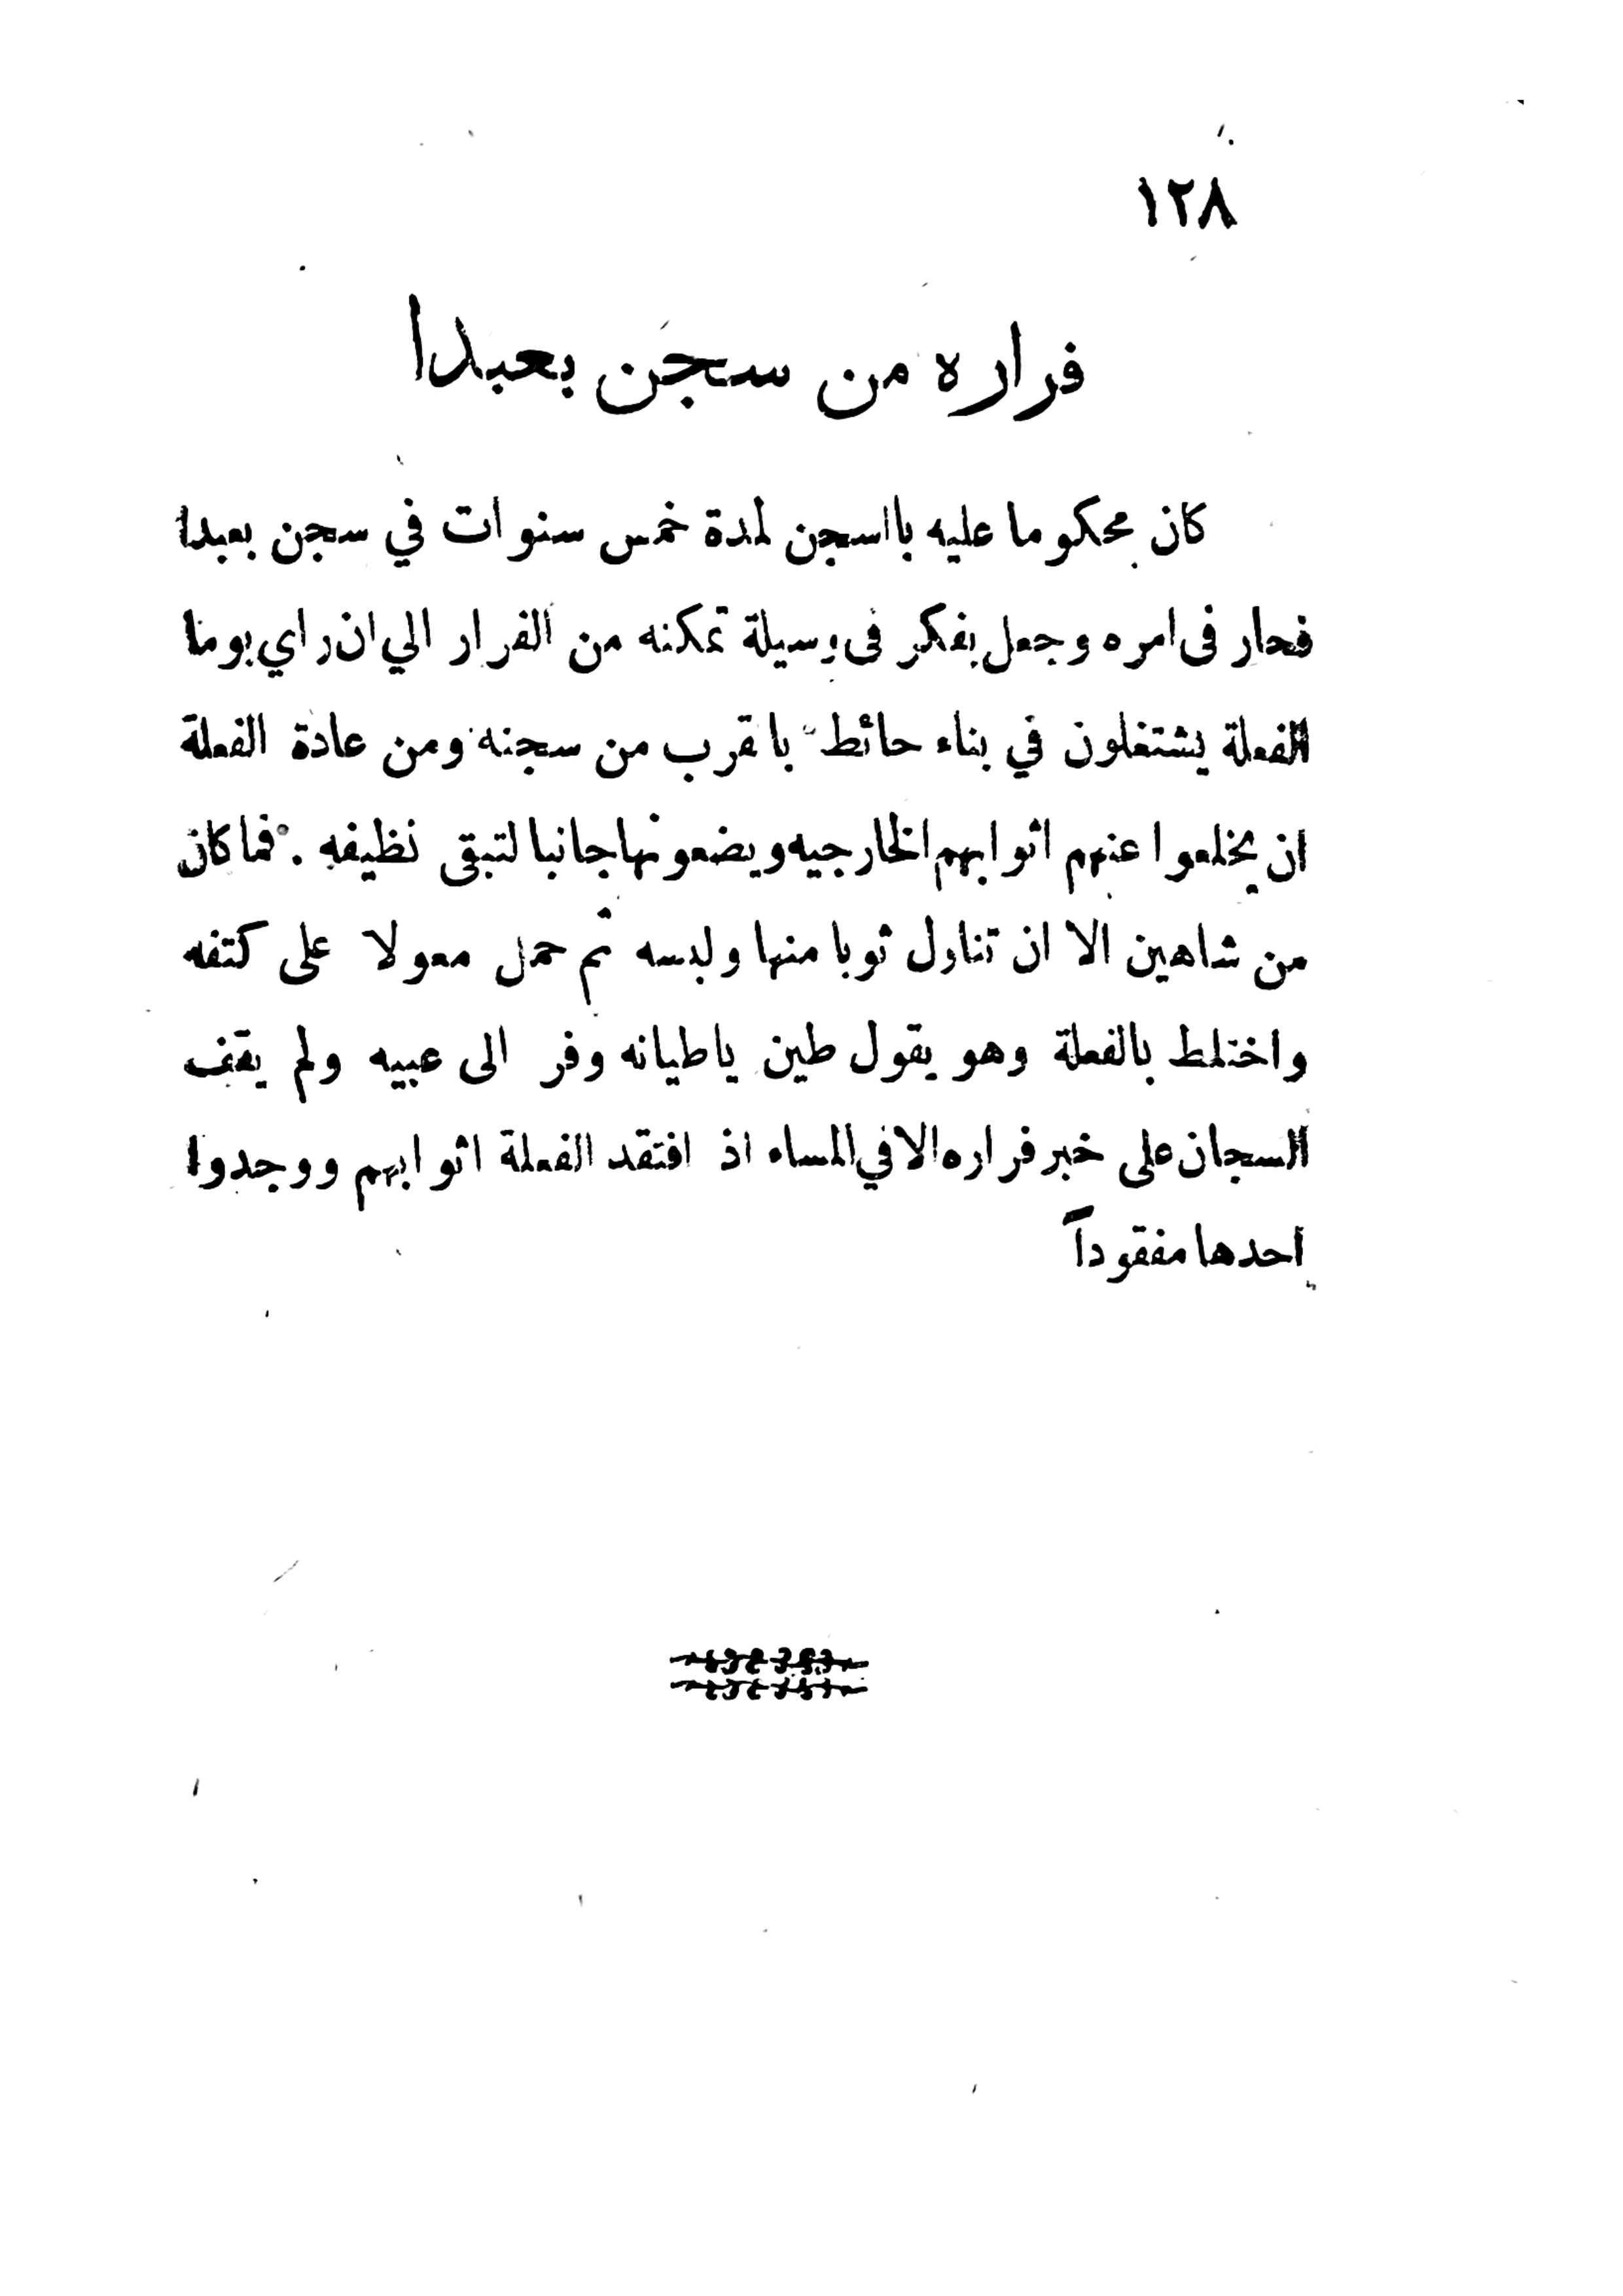 ١٢٨
فراره من سجن بعبدا
كان محكوما عليه بااسجن لمدة خمس سنوات في سجن بعبدا
فحار فى امره وجعل يفكر فى وسيلة تمكنه من الفرار الي ان راي يوما
الفعلة يشتغلون في بناء حائط باقرب من سجنه ومن عادة الفعلة
ان يخلعوا عنهم اثوابهم الخارجيه ويضعونها جانبا لتبقى نظيفه . فما كان
من شاهين الا ان تناول ثوبا منها ولبسه ثم حمل معولا على كتفه
واختلط بالفعلة وهو يقول طين ياطيانه وفر الى عبيه ولم يقف
السجان على خبر فراره الا في المساء اذ افتقد الفعلة اثوابهم ووجدوا
احدها مفقوداً